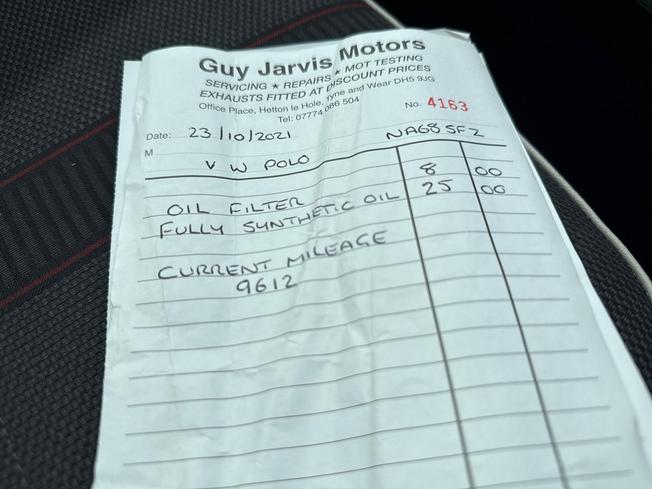 Guy Jarvis Motors
SERVICING ★ REPAIRS ★ MOT TESTING
EXHAUSTS FITTED AT DISCOUNT PRICES
Office Place, Hetton le Hole, Tyne and Wear DH5 9JG
Tel: 07774 086 504
No. 4163
Date: 23/10/2021 NA68SFZ
M VW POLO
OIL FILTER 8 00
FULLY SYNTHETIC OIL 25 00
CURRENT MILEAGE
9612